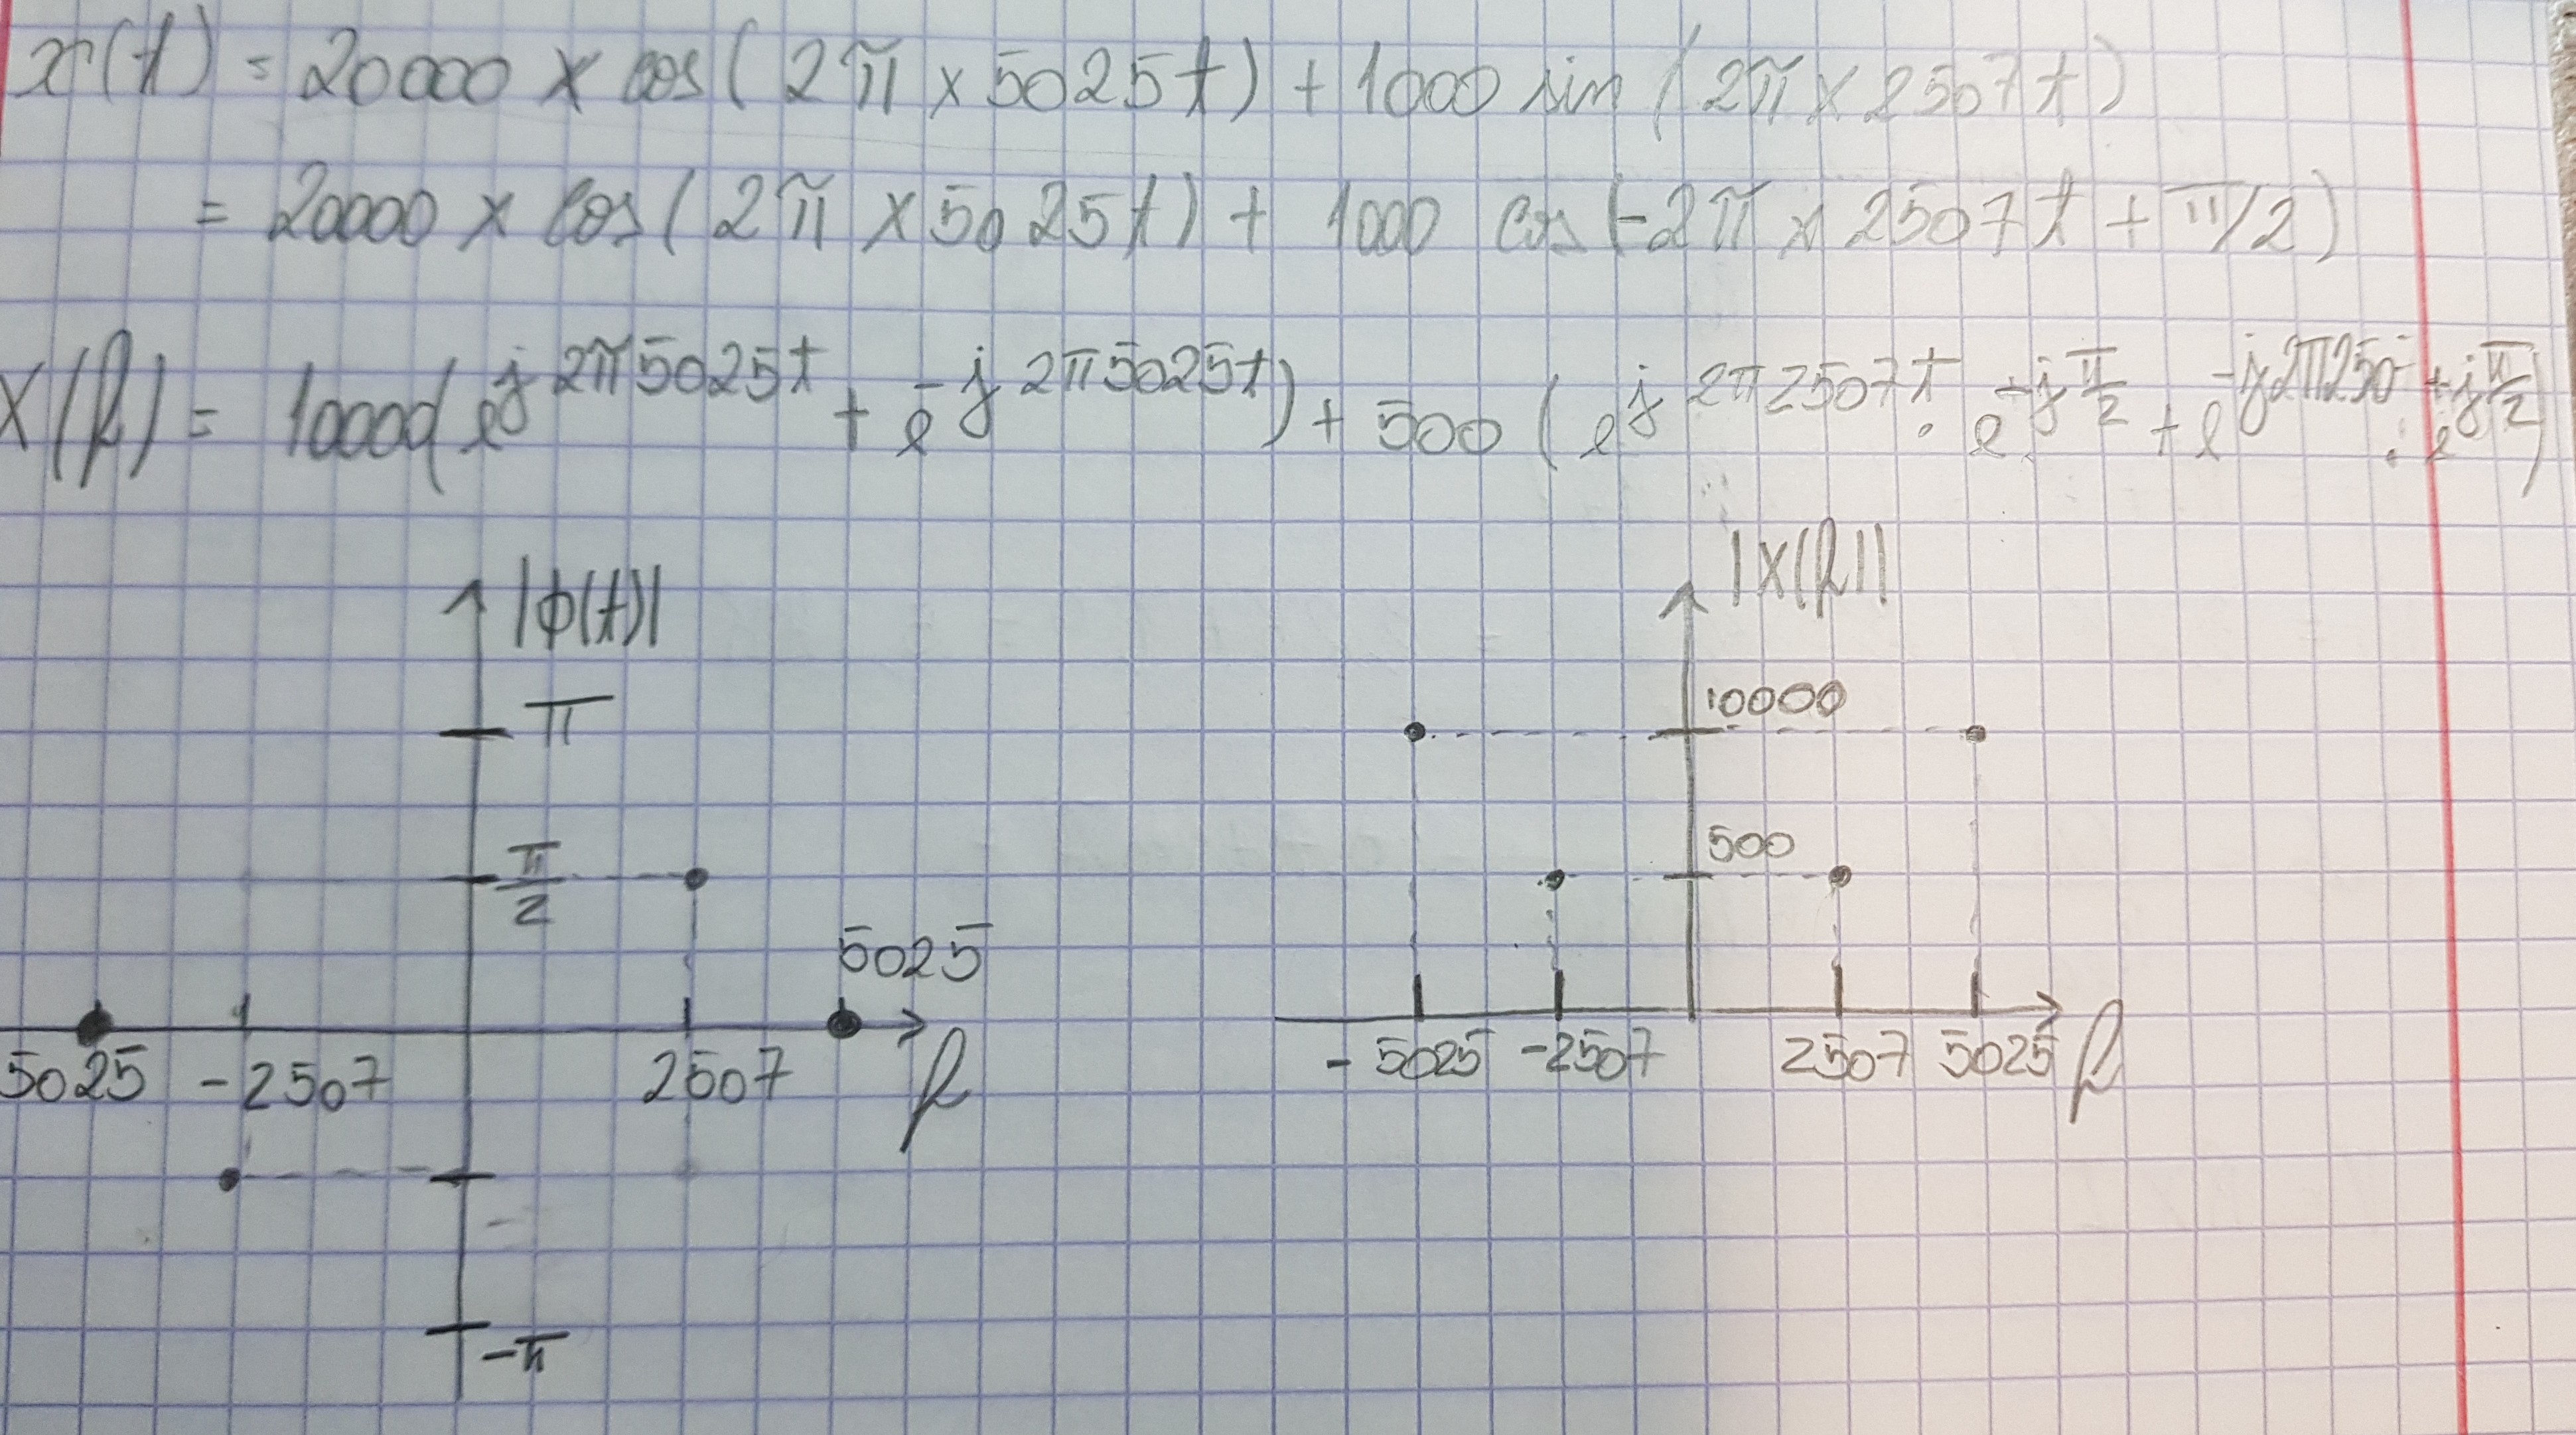 x(t) = 20000 × cos(2π × 5025t) + 1000 sin(2π × 2507t)
= 20000 × cos(2π × 5025t) + 1000 cos(-2π × 2507t + π/2)
X(f) = 10000(e^{j2π5025t} + e^{-j2π5025t}) + 500(e^{j2π2507t} · e^{-jπ/2} + e^{-j2π250} · e^{+jπ/2})
|ϕ(t)|
π
π/2
5025
5025 -2507 2507 f
-π
|X(f)|
10000
500
-5025 -2507 2507 5025 f